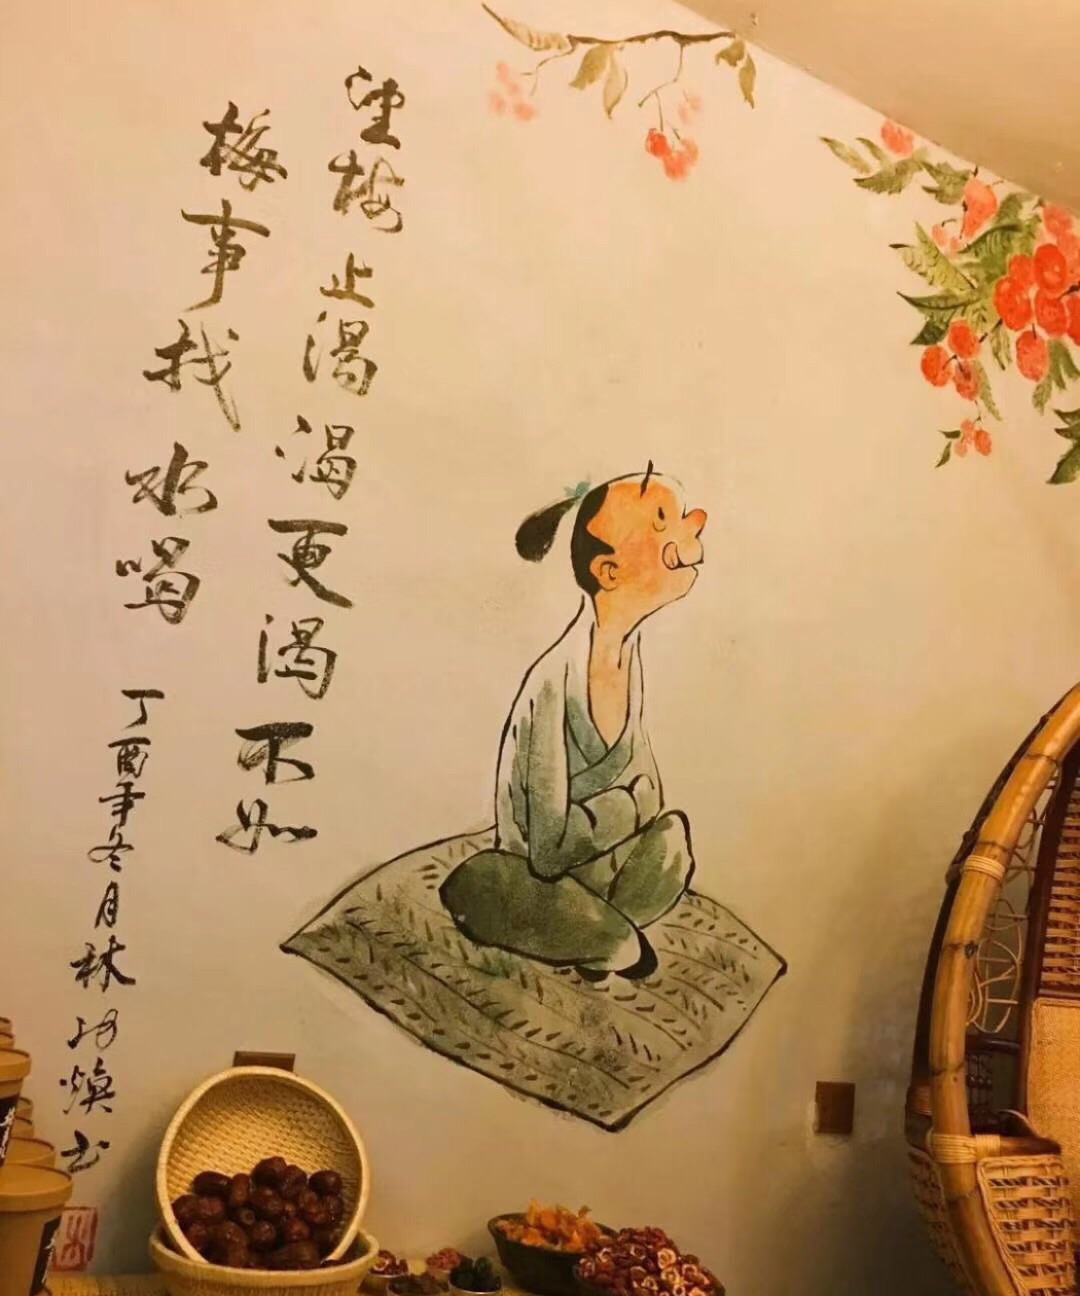 望梅止渴
渴更渴不如
梅事找水喝
丁酉年冬月林

焕书